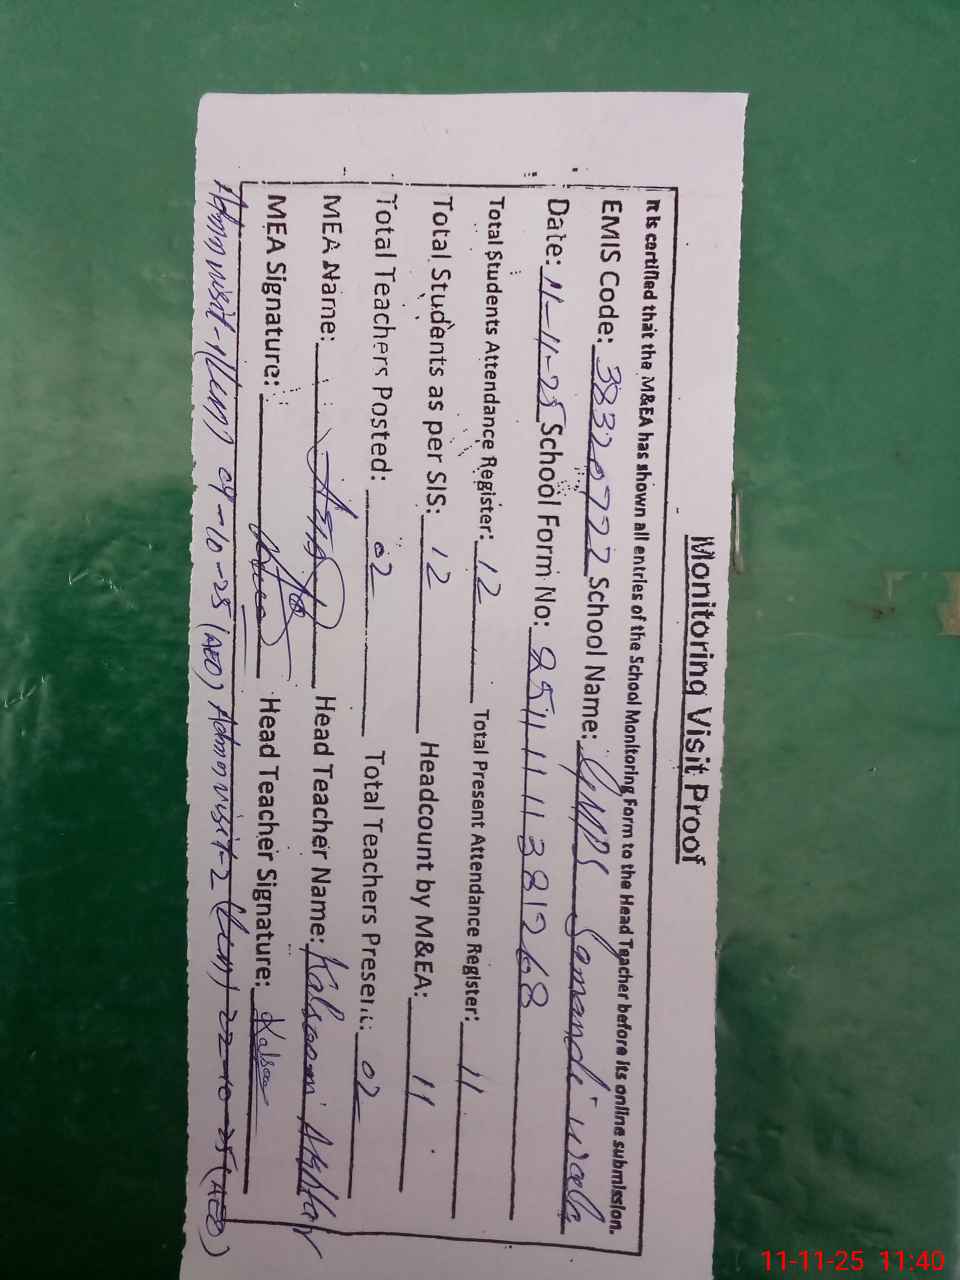 Monitoring Visit Proof
It is certified that the M&EA has shown all entries of the School Monitoring Form to the Head Teacher before its online submission.
EMIS Code: 38320722 School Name: GMPS Samandi
Date: 11-11-25 School Form No: 2511111381268
Total Students Attendance Register: 12 Total Present Attendance Register: 11
Total Students as per SIS: 12 Headcount by M&EA: 11
Total Teachers Posted: 02 Total Teachers Present: 02
MEA Name: Head Teacher Name: Kalsoom Akhtar
MEA Signature: Head Teacher Signature: Kalsoom
Admn visit-1 09-10-25 (AEO) Admn visit-2 22-10-25 (AEO)
11-11-25 11:40